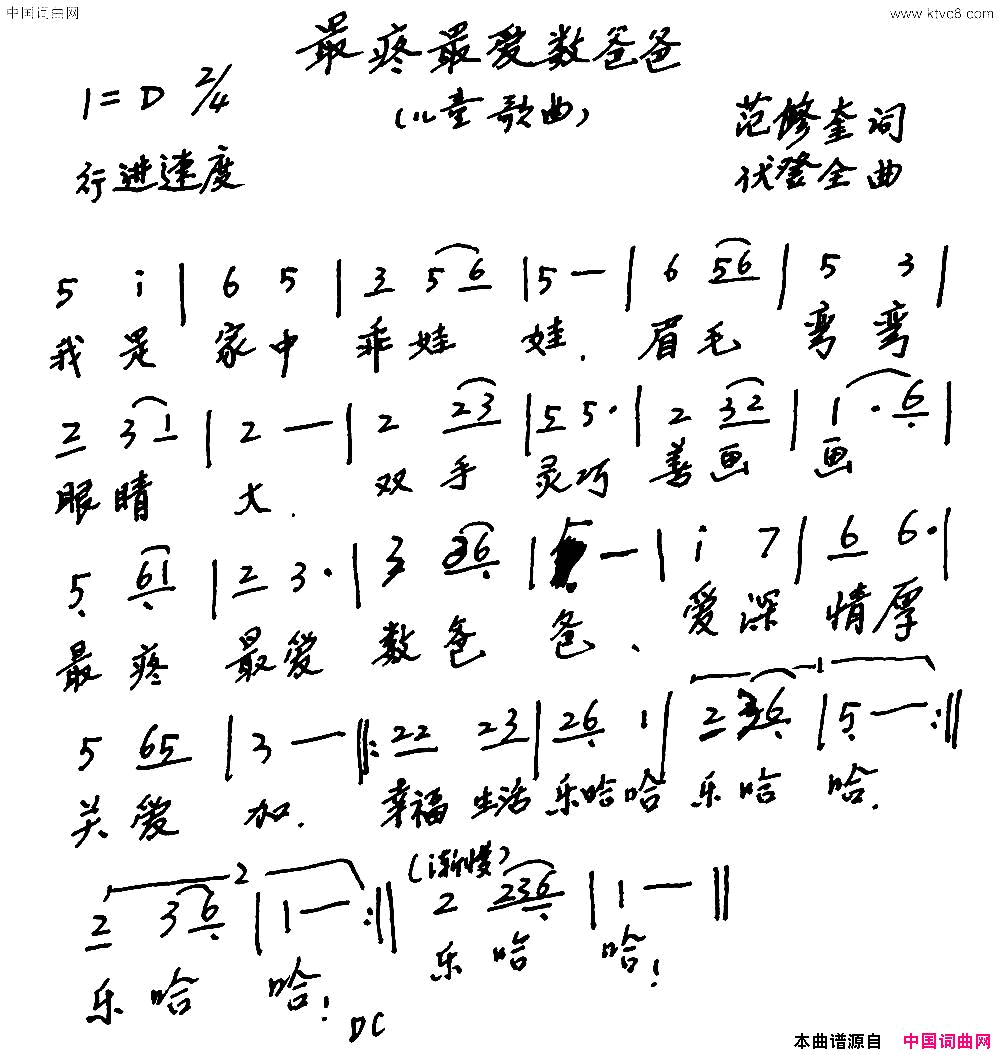 中国词曲网 www.ktvc8.com
最疼最爱数爸爸
1=D 2/4 (儿童歌曲) 范修奎词
行进速度 伏登全曲
5 i | 6 5 | 3 5 6 | 5 — | 6 56 | 5 3 |
我是 家中 乖娃 娃. 眉毛 弯弯
2 3 1 | 2 — | 2 23 | 5 5· | 2 32 | 1· 6 |
眼睛 大. 双手 灵巧 善画 画
5 61 | 2 3· | 3 36 | 5 — | i 7 | 6 6· |
最疼 最爱 数爸 爸、 爱深 情厚
5 65 | 3 — ‖: 22 23 | 26 1 | 2 36 | 5 — :‖
关爱 加. 幸福生活 乐哈哈 乐哈 哈.
2 (渐慢)
2 3 6 | 1 — :‖ 2 236 | 1 — ‖
乐哈 哈! 乐哈 哈!
DC
本曲谱源自 中国词曲网